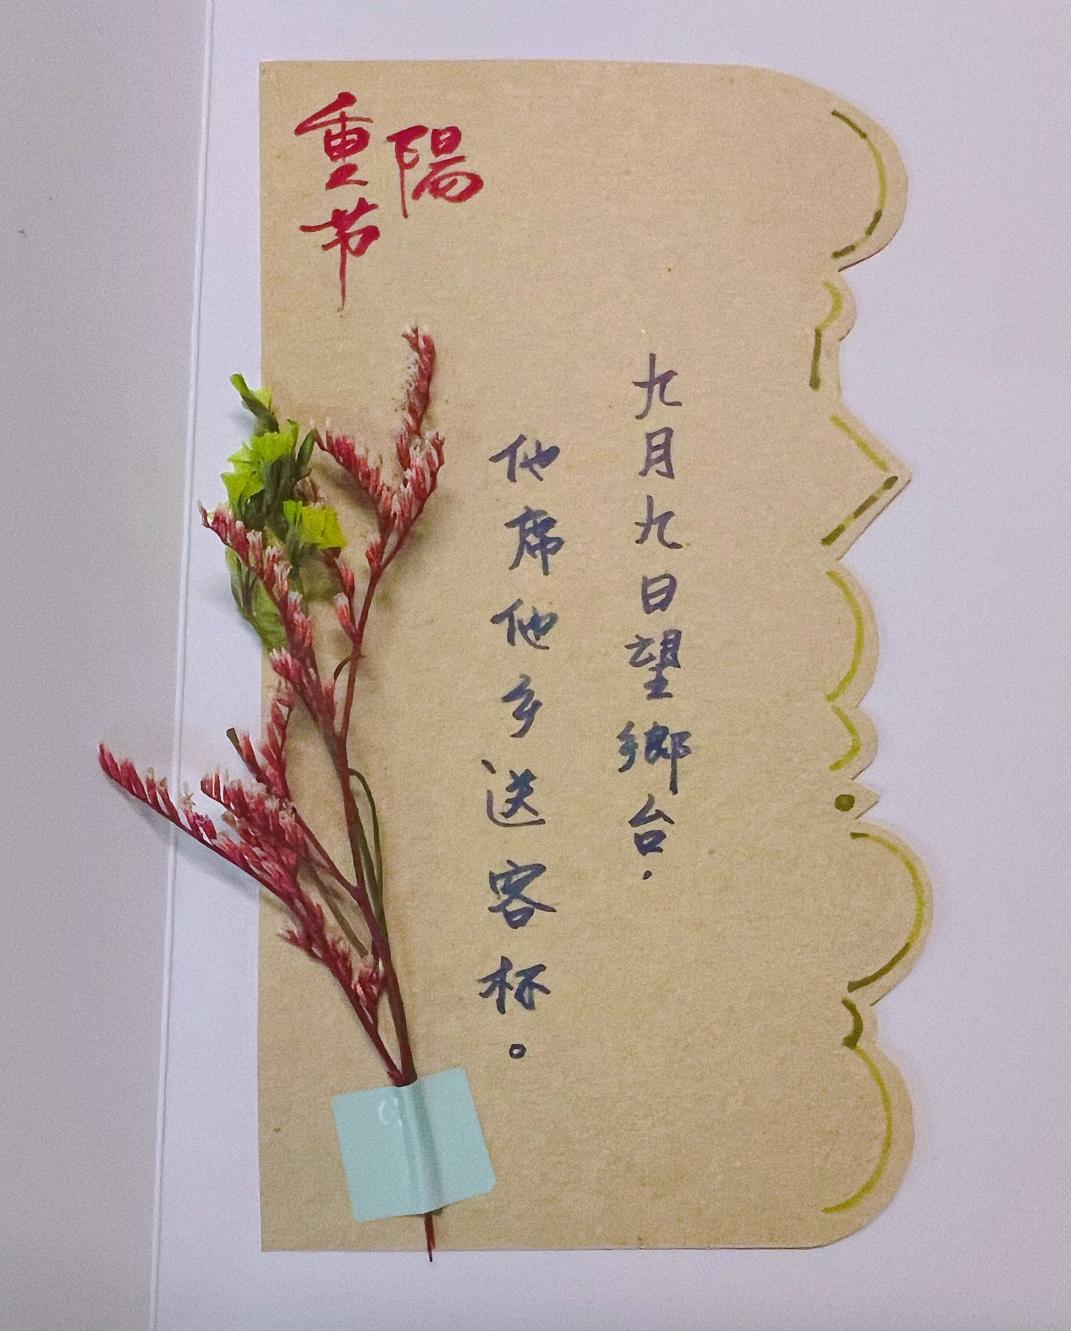 重陽
节
九月九日望鄉台.
他席他乡送客杯。